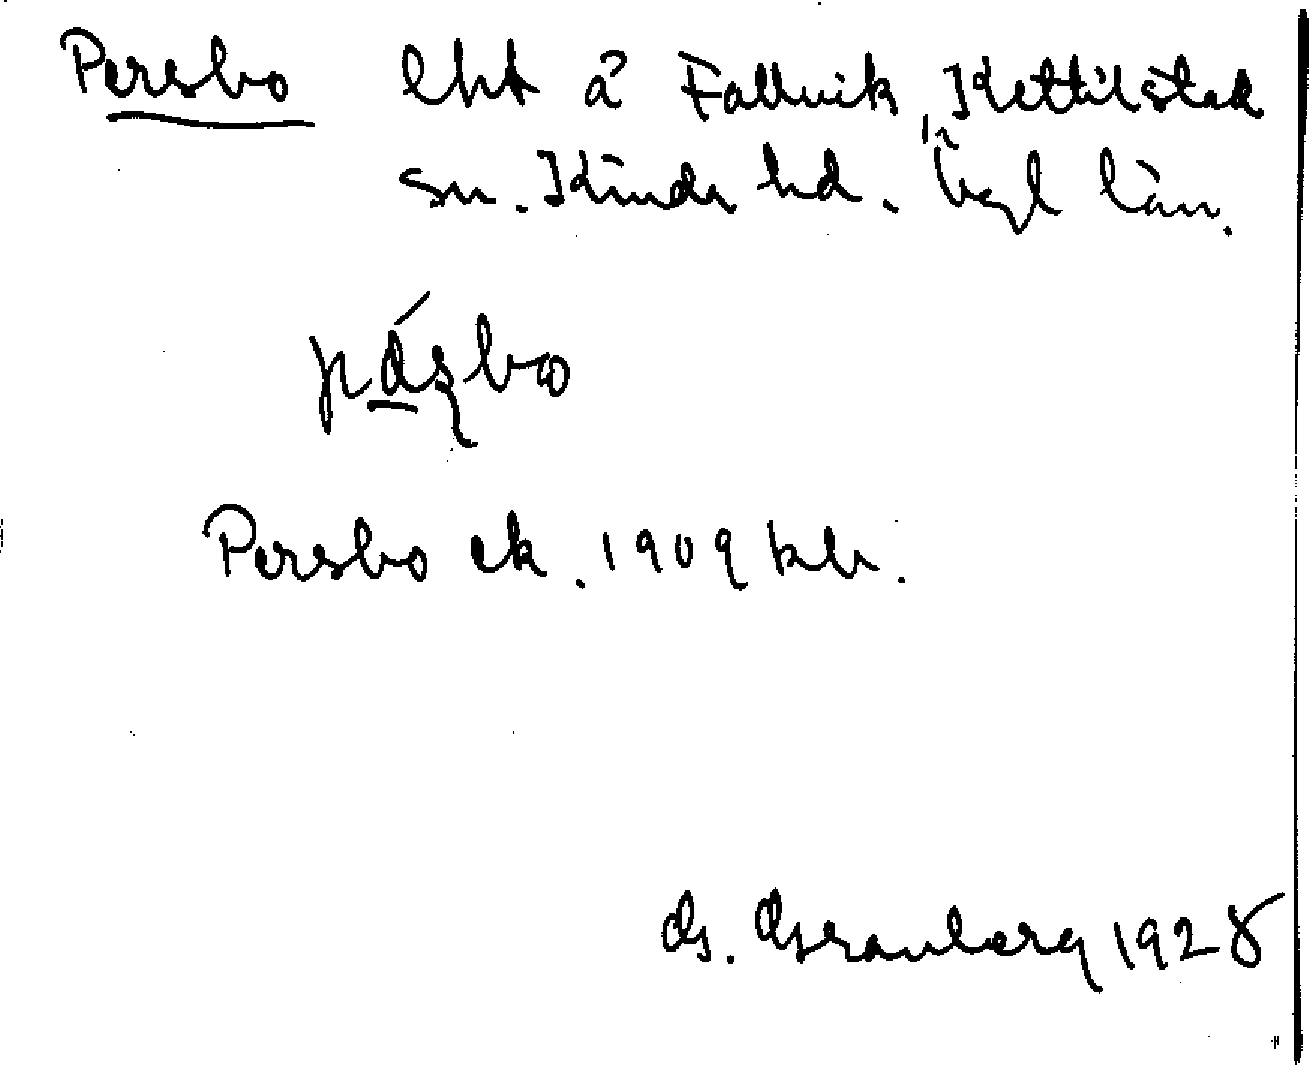 Persbo lht å Fallvik, Kettilstad
sn. Kinda hd. Ögl län.
pásbo
Persbo ek. 1909 kb.
G. Granberg 1928